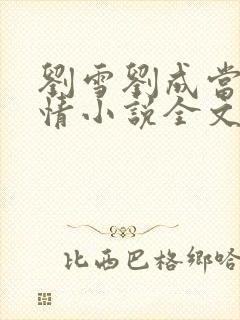 劉雪劉成當
情小說全文
比西巴格鄉哈